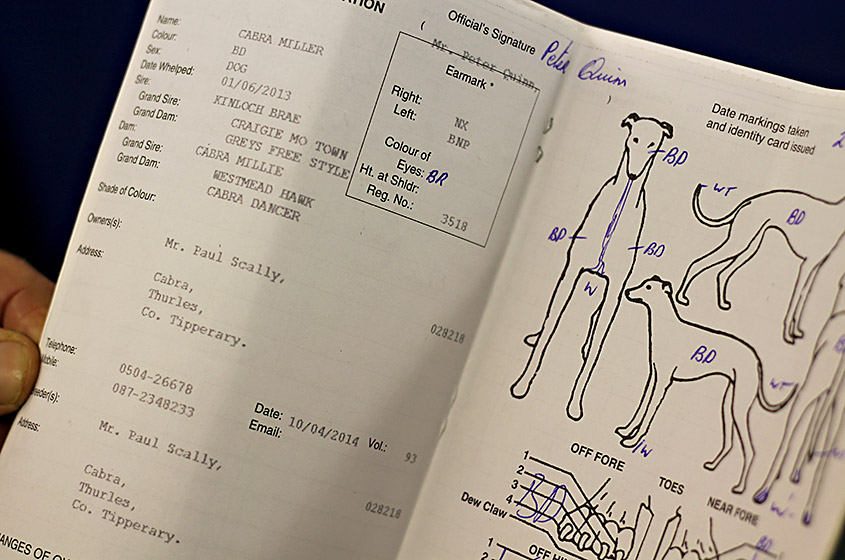 ATION
Name: CABRA MILLER
Colour: BD
Sex: DOG
Date Whelped: 01/06/2013
Sire: KINLOCH BRAE
Grand Sire: CRAIGIE MO TOWN
Grand Dam: GREYS FREE STYLE
Dam: CABRA MILLIE
Grand Sire: WESTMEAD HAWK
Grand Dam: CABRA DANCER
Shade of Colour:
Owners(s): Mr. Paul Scally,
Address: Cabra,
Thurles,
Co. Tipperary.
028218
Telephone: 0504-26678
Mobile: 087-2348233
eeder(s): Mr. Paul Scally,
Date: 10/04/2014 Vol.: 93
Email:
Address: Cabra,
Thurles,
Co. Tipperary.
028218
ANGES OF
Official's Signature Peter Quinn
Mr. Peter Quinn
Earmark *
Right: NX
Left: BNP
Colour of
Eyes: BR
Ht. at Shldr:
Reg. No.: 3518
Date markings taken
and identity card issued 2
BD
WT
BD
BD
BD
W
BD
WT
W
W
OFF FORE
TOES
NEAR FORE
1
2
3
4
BD
Dew Claw
BD
OFF HI
1
2